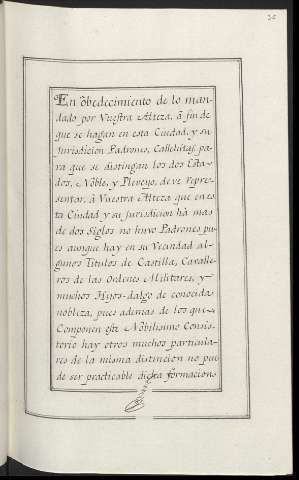 35
En õbedecimiento de lo man-
dado por Vuestra Alteza, â fin de
que se hagan en esta Ciudad, y su
Jurisdicion Padrones, Callehitas, pa-
ra que se distingan los dos Esta-
dos, Noble, y Pleveyo, deve repre-
sentar, â Vuestra Alteza que en es-
ta Ciudad y su Jurisdicion hà mas
de dos Siglos no huvo Padrones, pu-
es aunque hay en su Vecindad al-
gunos Titulos de Castilla, Cavalle-
ros de las Ordenes Militares, y
muchos Hijos-dalgo de conocida
nobleza, pues ademas de los que
Componen este Nobilisimo Consis-
torio hay otros muchos particula-
res de la misma distincion no pue
de ser practicable dicha formacion